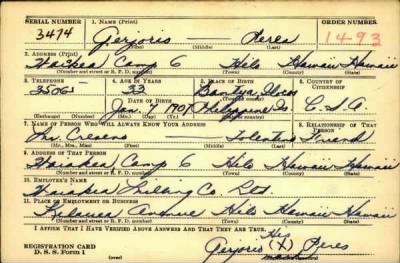 SERIAL NUMBER 1. NAME (Print) ORDER NUMBER
3474 Gerjorio Peres 1493
(First) (Middle) (Last)
2. ADDRESS (Print)
Waiakea Camp 6 Hilo Hawaii Hawaii
(Number and street or R. F. D. number) (Town) (County) (State)
3. TELEPHONE 4. AGE IN YEARS 5. PLACE OF BIRTH 6. COUNTRY OF CITIZENSHIP
33
DATE OF BIRTH
Jan. 7 1907 Philippine Is.
(Exchange) (Number) (Mo.) (Day) (Yr.) (State or country)
7. NAME OF PERSON WHO WILL ALWAYS KNOW YOUR ADDRESS 8. RELATIONSHIP OF THAT PERSON
Tolentino Friend
(Mr., Mrs., Miss) (First) (Middle) (Last)
9. ADDRESS OF THAT PERSON
Waiakea Camp 6 Hilo Hawaii Hawaii
(Number and street or R. F. D. number) (Town) (County) (State)
10. EMPLOYER'S NAME
Waiakea Milling Co. Ltd.
11. PLACE OF EMPLOYMENT OR BUSINESS
Kalanea Avenue Hilo Hawaii Hawaii
(Number and street or R. F. D. number) (Town) (County) (State)
I AFFIRM THAT I HAVE VERIFIED ABOVE ANSWERS AND THAT THEY ARE TRUE.
His
REGISTRATION CARD Gerjorio (X) Peres
D. S. S. Form 1 (over) mark